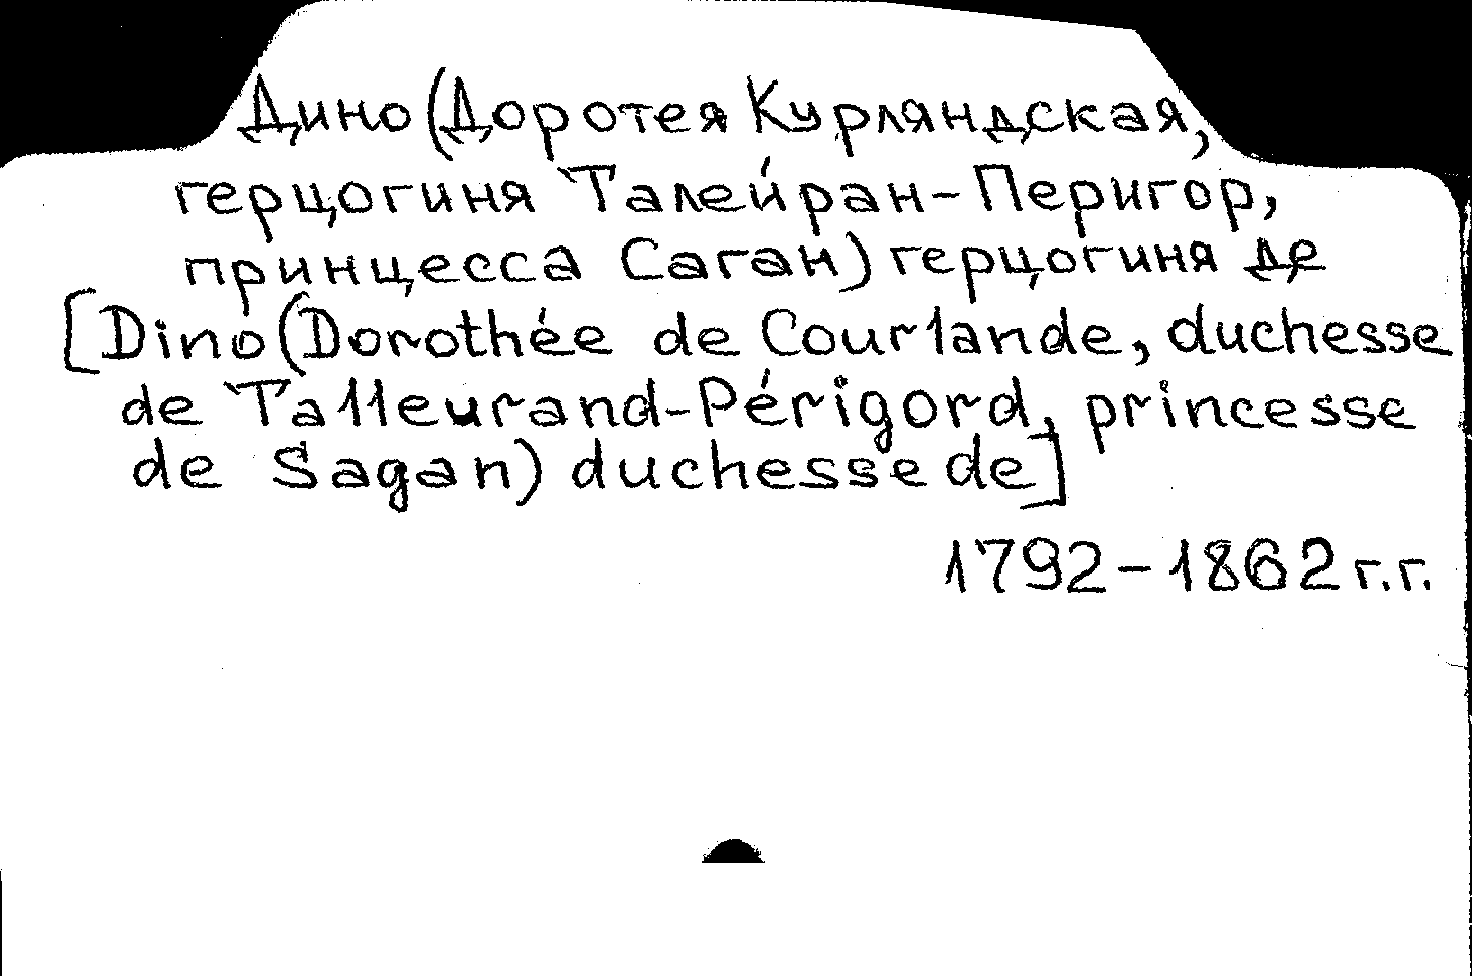 Дино (Доротея Курляндская,
герцогиня Талейран-Перигор,
принцесса Саган) герцогиня де
[Dino (Dorothée de Courlande, duchesse
de Talleurand-Périgord, princesse
de Sagan) duchesse de]
1792-1862 г.г.